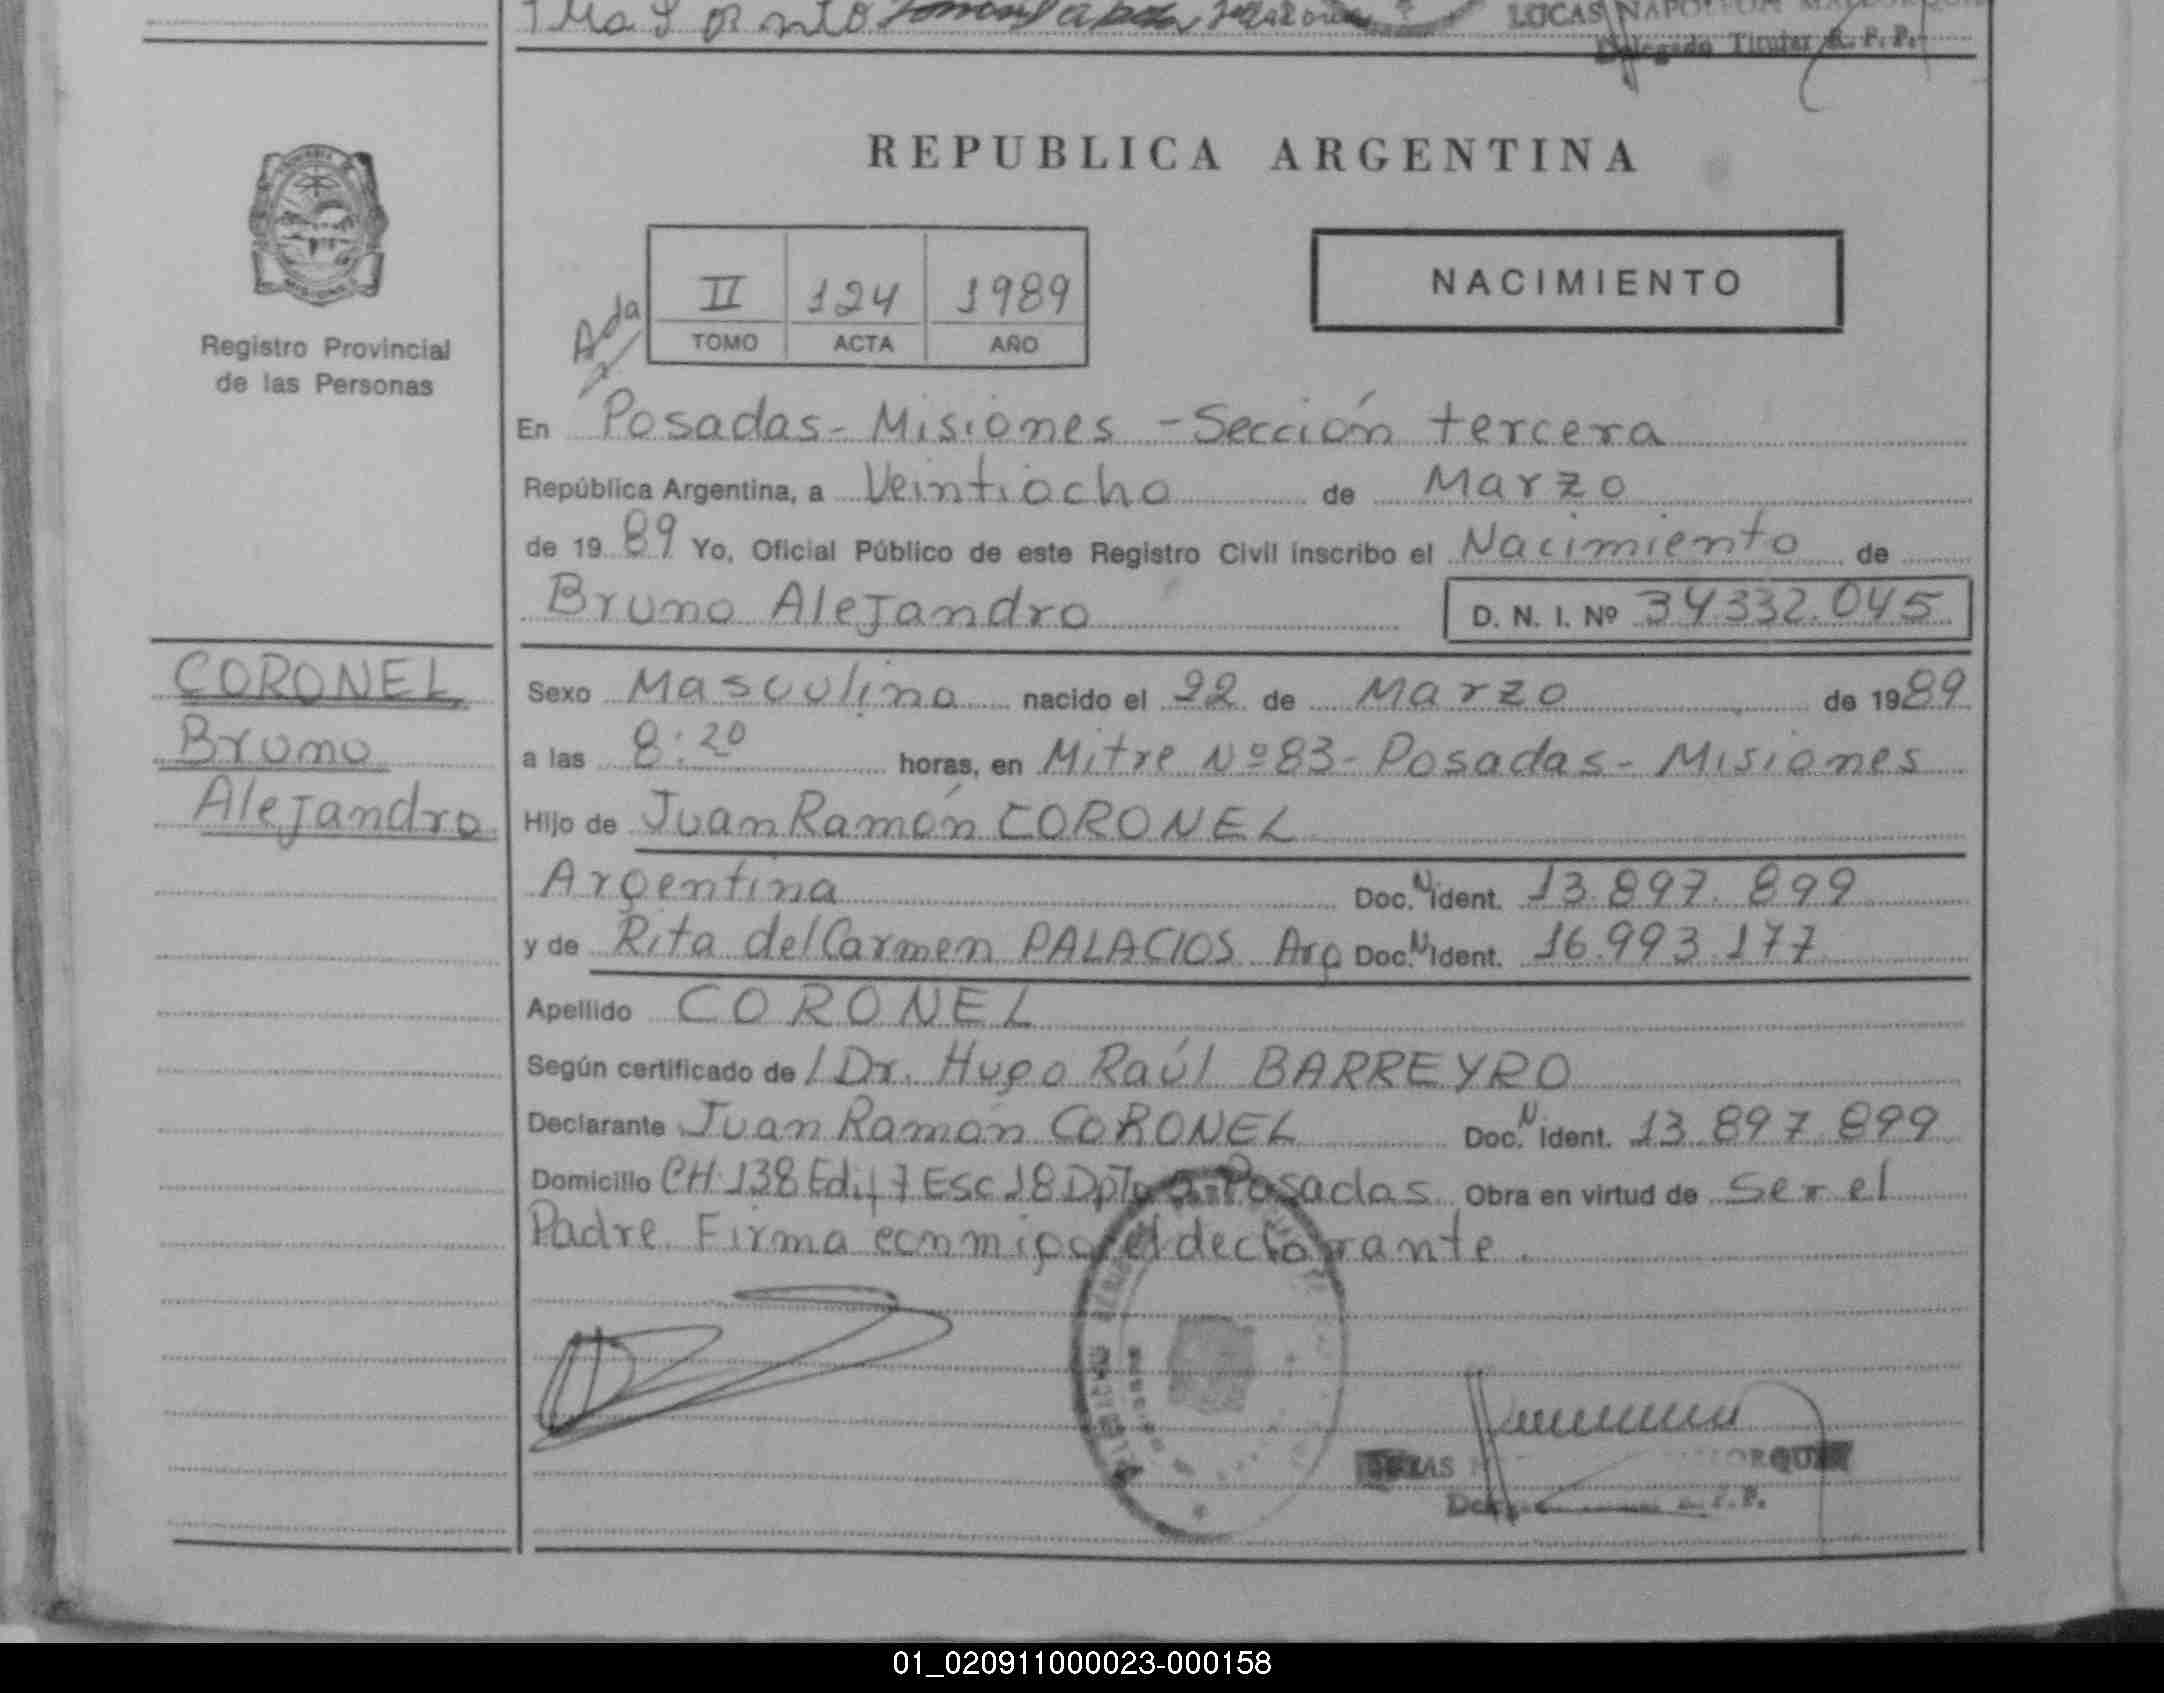 LUCAS NAPOLEON
Delegado Titular R. P. P.
REPUBLICA ARGENTINA
Registro Provincial
de las Personas
Ada
II 124 1989
TOMO ACTA AÑO
NACIMIENTO
En Posadas - Misiones - Sección tercera
República Argentina, a Veintiocho de Marzo
de 1989 Yo, Oficial Público de este Registro Civil inscribo el Nacimiento de
Bruno Alejandro D. N. I. Nº 34332.045
CORONEL
Bruno
Alejandro
Sexo Masculino nacido el 22 de Marzo de 1989
a las 8:20 horas, en Mitre Nº 83 - Posadas - Misiones
Hijo de Juan Ramón CORONEL
Argentina Doc. N ident. 13.897.899
y de Rita del Carmen PALACIOS Arg Doc. N ident. 16.993.177
Apellido CORONEL
Según certificado de / Dr. Hugo Raúl BARREYRO
Declarante Juan Ramón CORONEL Doc. N ident. 13.897.899
Domicilio CH 138 Edif 7 Esc 18 Dpto Posadas Obra en virtud de Ser el
Padre. Firma conmigo el declarante.
01_020911000023-000158